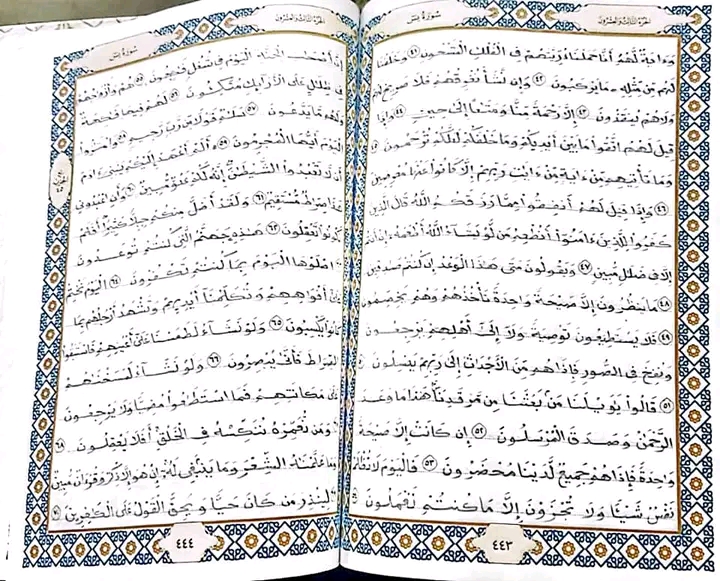 سورة يس
الجزء الثالث والعشرون
وءاية لهم أنا حملنا ذريتهم في الفلك المشحون ٤١ وخلقنا
لهم من مثله ما يركبون ٤٢ وإن نشأ نغرقهم فلا صريخ لهم
ولا هم ينقذون ٤٣ إلا رحمة منا ومتعا إلى حين ٤٤ وإذا
قيل لهم اتقوا ما بين أيديكم وما خلفكم لعلكم ترحمون ٤٥
وما تأتيهم من ءاية من ءايت ربهم إلا كانوا عنها معرضين
٤٦ وإذا قيل لهم أنفقوا مما رزقكم الله قال الذين
كفروا للذين ءامنوا أنطعم من لو يشاء الله أطعمه إن أنتم
إلا في ضلل مبين ٤٧ ويقولون متى هذا الوعد إن كنتم صدقين
٤٨ ما ينظرون إلا صيحة واحدة تأخذهم وهم يخصمون
٤٩ فلا يستطيعون توصية ولا إلى أهلهم يرجعون
ونفخ في الصور فإذا هم من الأجداث إلى ربهم ينسلون
٥١ قالوا يويلنا من بعثنا من مرقدنا هذا ما وعد
الرحمن وصدق المرسلون ٥٢ إن كانت إلا صيحة
واحدة فإذا هم جميع لدينا محضرون ٥٣ فاليوم لا تظلم
نفس شيئا ولا تجزون إلا ما كنتم تعملون
٤٤٣
سورة يس
الجزء الثالث والعشرون
إن أصحب الجنة اليوم في شغل فكهون ٥٥ هم وأزوجهم
في ظلل على الأرائك متكئون ٥٦ لهم فيها فكهة
ولهم ما يدعون ٥٧ سلم قولا من رب رحيم ٥٨ وامتزوا
اليوم أيها المجرمون ٥٩ ألم أعهد إليكم يبني ءادم
أن لا تعبدوا الشيطن إنه لكم عدو مبين ٦٠ وأن اعبدوني
هذا صراط مستقيم ٦١ ولقد أضل منكم جبلا كثيرا أفلم
تكونوا تعقلون ٦٢ هذه جهنم التي كنتم توعدون
اصلوها اليوم بما كنتم تكفرون ٦٤ اليوم نختم
على أفوههم وتكلمنا أيديهم وتشهد أرجلهم بما
كانوا يكسبون ٦٥ ولو نشاء لطمسنا على أعينهم فاستبقوا
الصراط فأنى يبصرون ٦٦ ولو نشاء لمسخنهم
على مكانتهم فما استطعوا مضيا ولا يرجعون
ومن نعمره ننكسه في الخلق أفلا يعقلون ٦٨
وما علمنه الشعر وما ينبغي له إن هو إلا ذكر وقرءان مبين
لينذر من كان حيا ويحق القول على الكفرين
٤٤٤